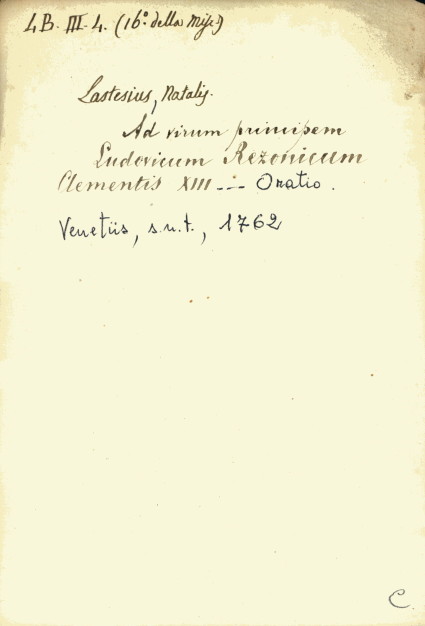 4B. III. 4. (16º della Misc)
Lastesius, Natalis.
Ad virum principem
Ludovicum Rezonicum
Clementis XIII --- Oratio.
Venetiis, s.n.t., 1762
C